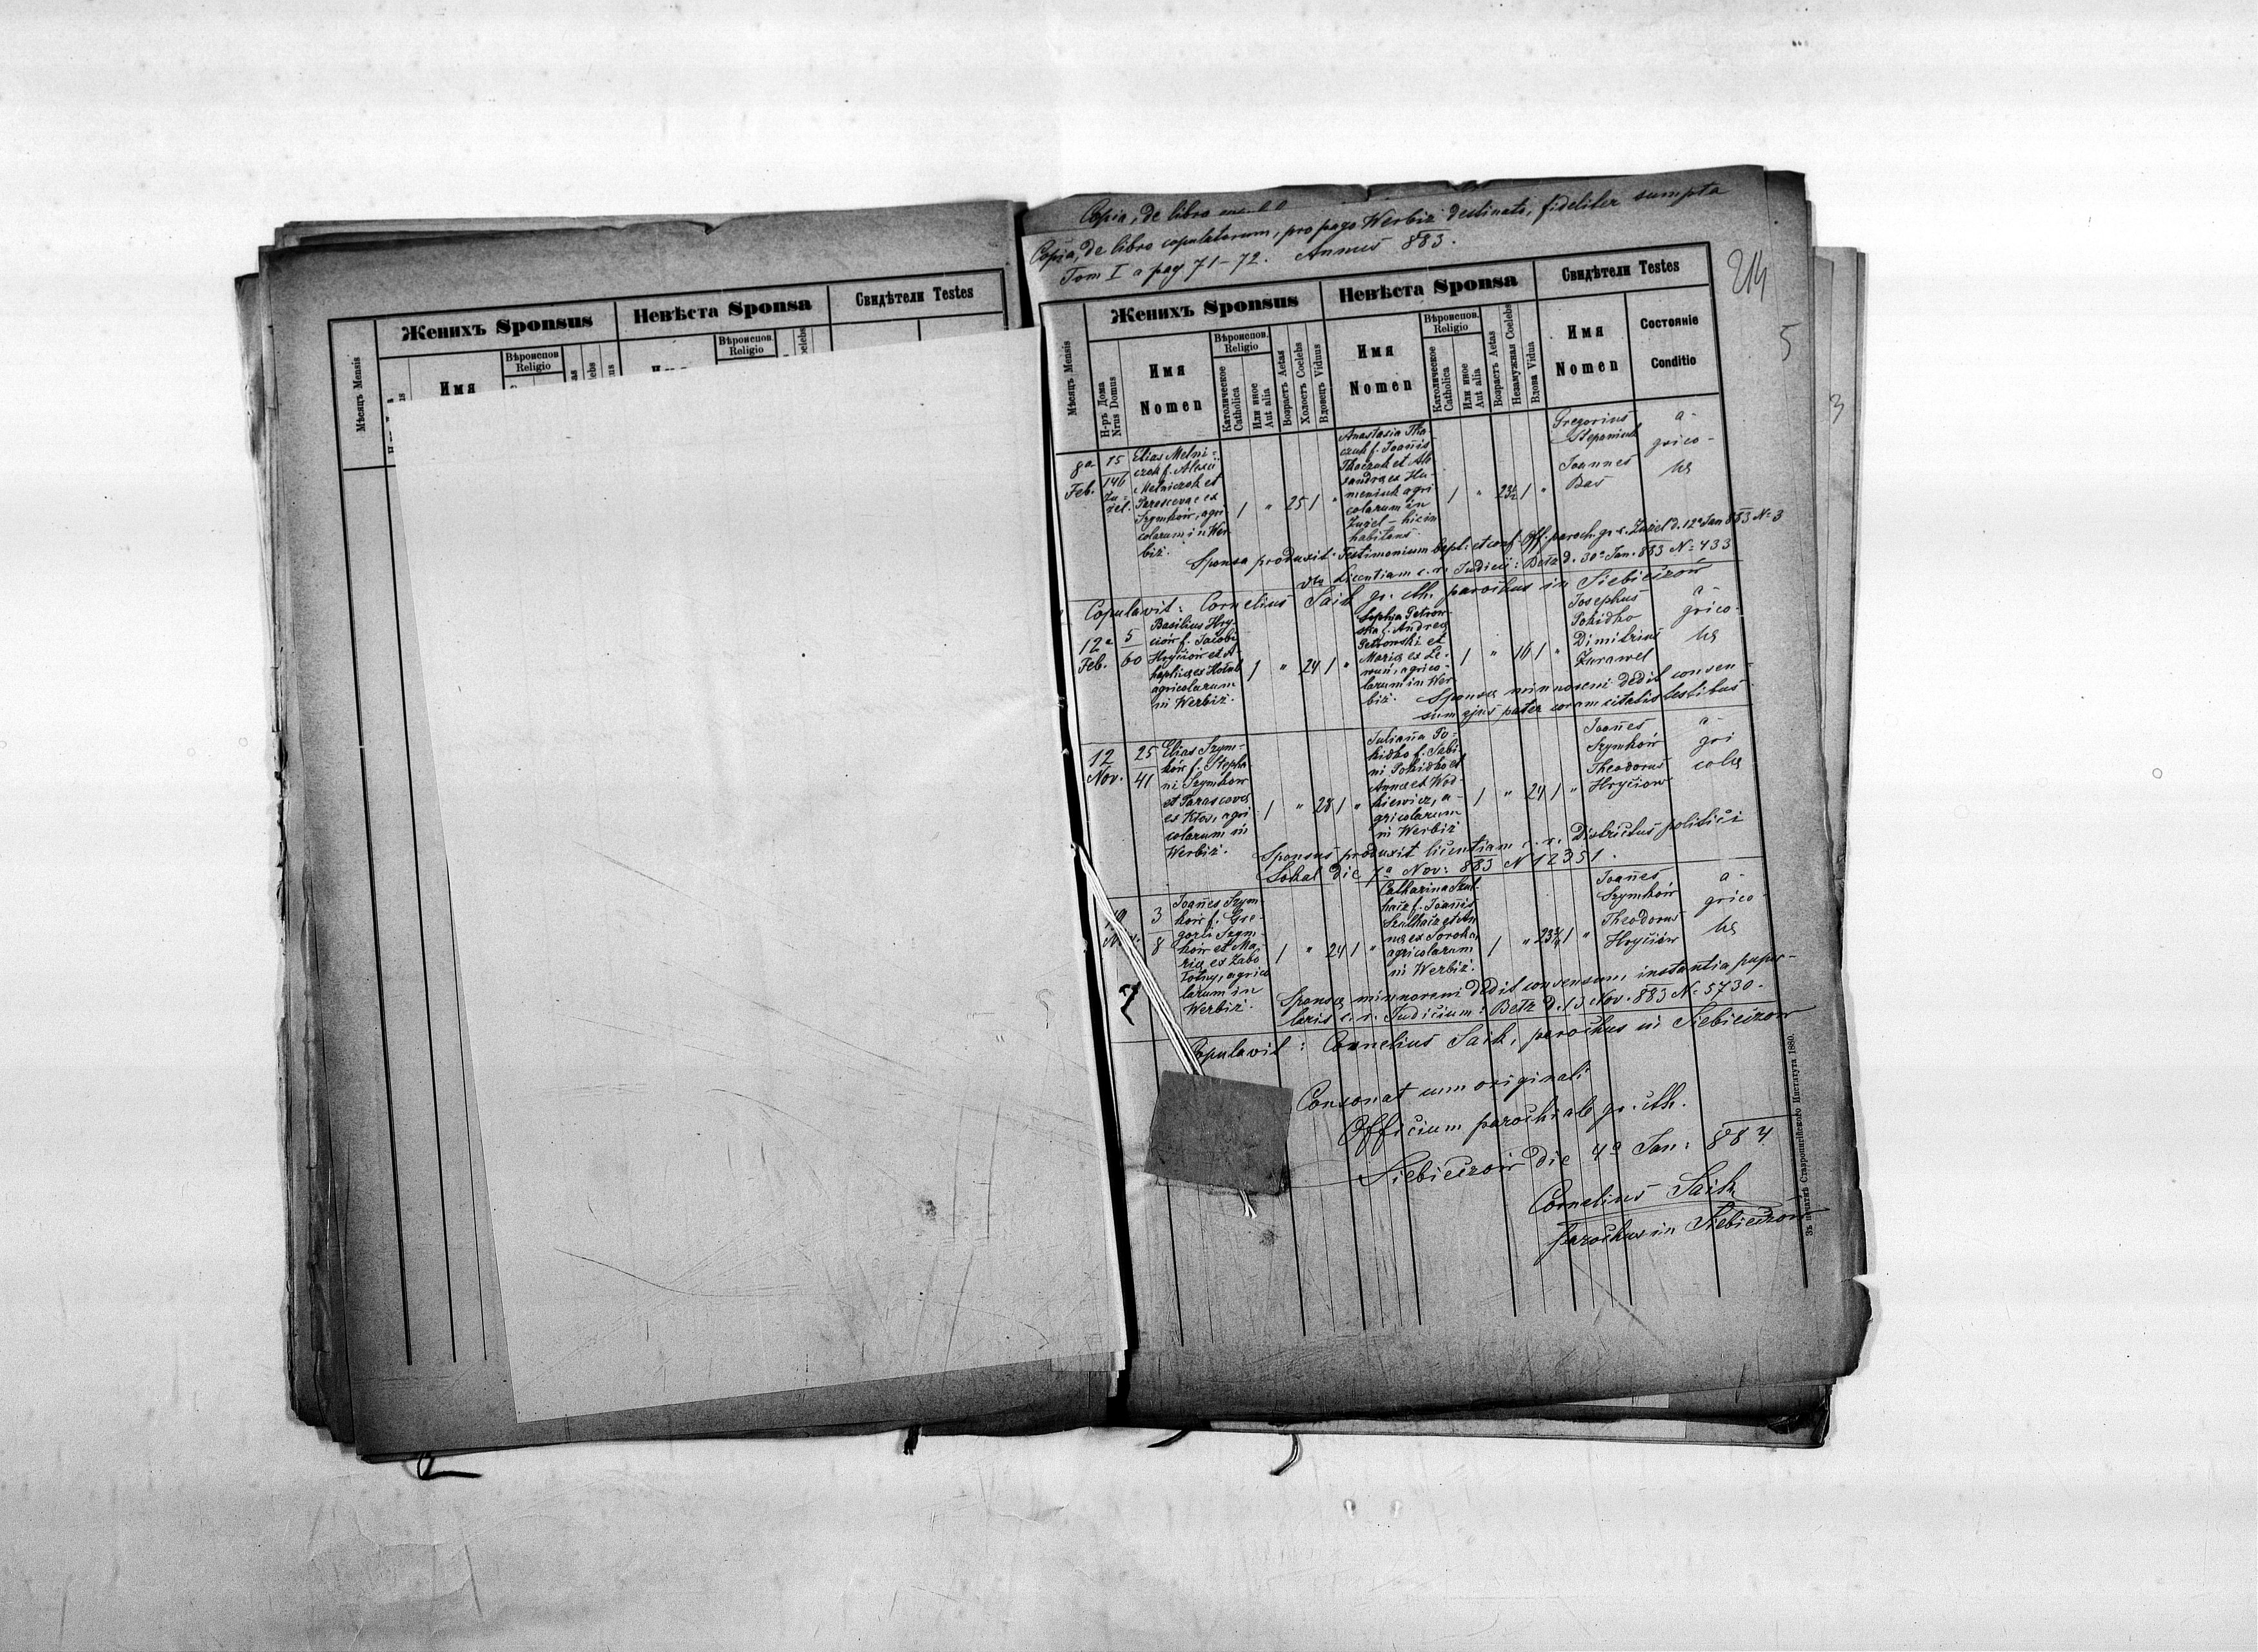 Женихъ Sponsus
Невѣста Sponsa
Свидѣтели Testes
Мѣсяцъ Mensis
Имя
Вѣроиспов.
Religio
Вѣроиспов.
Religio
Copia, de libro
Copia, de libro copulatorum, pro pago Werbiż destinato, fideliter sumpta
Tom I a pag 71-72. Annus 883.
214
5
3
Женихъ Sponsus
Невѣста Sponsa
Свидѣтели Testes
Мѣсяцъ Mensis
Н-ръ Дома
Nrus Domus
Имя
Nomen
Вѣроиспов.
Religio
Католическое
Catholica
Или иное
Aut alia
Возрастъ Aetas
Холостъ Coelebs
Вдовецъ Viduus
Имя
Nomen
Вѣроиспов.
Religio
Католическое
Catholica
Или иное
Aut alia
Возрастъ Aetas
Незамужная Coelebs
Вдова Vidua
Имя
Nomen
Состояніе
Conditio
8a
Feb.
15
146
Żu-
żel.
Elias Melni-
czuk f. Alexii
Melniczuk et
Parascevae ex
Szymków, agri
colarum in Wer
biż.
1 " 25 1 "
Anastasia Tka
czuk f. Joannis
Tkaczuk et Ale
xandra ex Hu-
meniuk agri
colarum in
Żużel - hic in
habitans.
1 " 23½ 1 "
Gregorius
Stepaniuk
Joannes
Bas
a-
grico-
lae
Sponsa produxit: Testimonium bapt: et conf. Off. paroch. gr. c. Żużel d. 12a Jan 883 No 3
Licentiam c. r. Judicii: Bełz d. 30a Jan. 883 No 433
Copulavit: Cornelius Saik gr. cth. parochus in Siebieczów
12a
Feb.
5
60
Basilius Hry
ciów f. Jacobi
Hryciów et A-
haphia ex Hołub
agricolarum
in Werbiż.
1 " 24 1 "
Sophia Petrow-
ska f. Andreae
Petrowski et
Maria ex Le-
wun, agrico-
larum in Wer
biż.
1 " 16 1 "
Josephus
Pokidko
Dimitrius
Żurawel
a-
grico-
lae
Sponsae minnoreni dedit consen-
sum ejus pater coram citatis testibus
12
Nov.
25
41
Elias Szym-
ków f. Stepha
ni Szymkow
et Parascova
ex Kłos, agri
colarum in
Werbiż.
1 " 28 1 "
Julianna Po-
kidko f. Sabi-
ni Pokidko et
Anna ex Wod-
kiewicz, a-
gricolarum
in Werbiż
1 " 24 1 "
Joannes
Szymków
Theodorus
Hryciow
a-
gri
colae
Sponsus produxit licentiam c. r. Districtus politici
Sokal die 7a Nov: 883 N 12351.
19
3
8
Joannes Szym
ków f. Gre-
gorii Szym-
ków et Ma-
ria ex Zabo
łotny, agrico
larum in
Werbiż.
1 " 24 1 "
Catharina Szul-
haiz f. Joannis
Szulhaiz et An
na ex Soroka,
agricolarum
in Werbiż.
1 " 23¾ 1 "
Joannes
Szymków
Theodorus
Hryciów
a-
grico-
lae
Sponsae minnoreni dedit consensum, instantia pupi-
laris c. r. Judicium: Bełz d. 13 Nov. 883 No 5730.
Copulavit: Cornelius Saik, parochus in Siebieczow
Consonat cum originali
Officium parochiale gr. cth.
Siebieczów die 4a Jan: 884
Cornelius Saik
parochus in Siebieczow
Зъ печатнѣ Ставропигійского Института 1880.